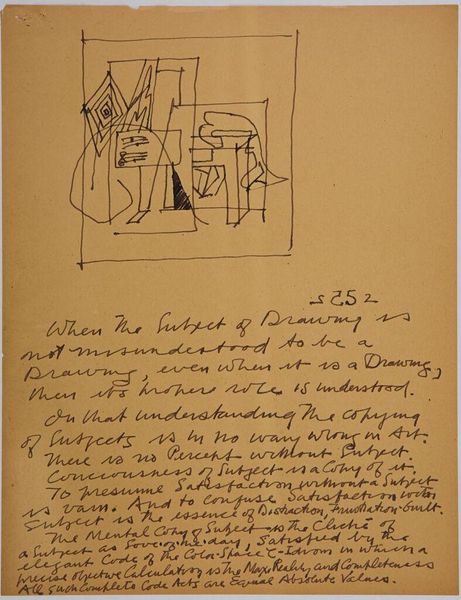 When The Subject of Drawing is
not misunderstood to be a
Drawing, even when it is a Drawing,
then its proper role is understood.
On that understanding The copying
of Subjects is in no way wrong in Art.
There is no Percept without Subject.
Conciousness of Subject is a Copy of it.
To presume Satisfaction without a Subject
is vain. And to confuse Satisfaction with
Subject is the essence of Distraction, Frustration - Guilt.
The Mental Copy of Subject is the Cliché of
a Subject as Sore as the day, Satisfied by the
elegant Code of the Color-Space C-Idiom in which a
precise objective Calculation is the Max Reality and Completeness
All such Complete Code Acts are Equal Absolute Values.